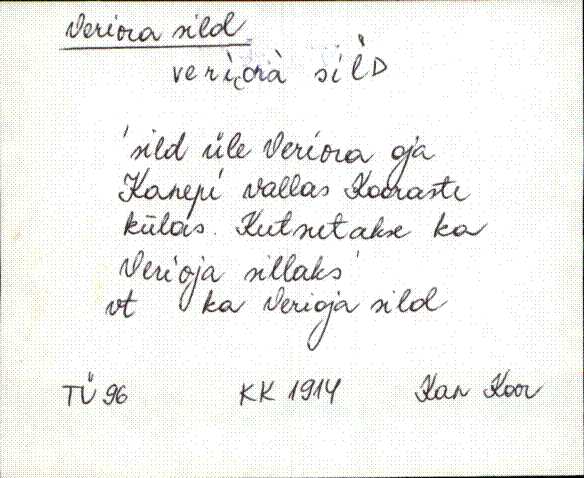 Veriora sild
veri̮orà sìl̀D
'sild üle Veriora oja
Kanepi vallas Kooraste
külas. Kutsutakse ka
Verioja sillaks'
vt ka Verioja sild
TÜ 96 KK 1914 Kan Koor